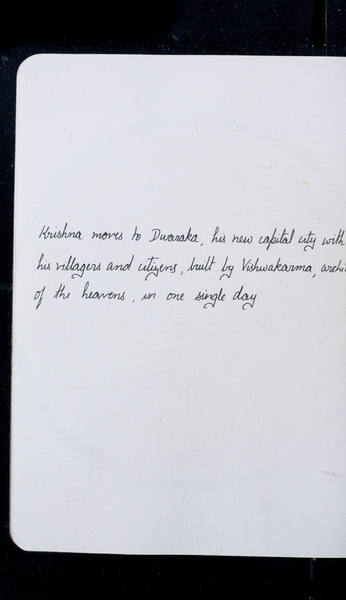 Krishna moves to Dwaraka, his new capital city with
his villagers and citizens, built by Vishwakarma, archi
of the heavens, in one single day